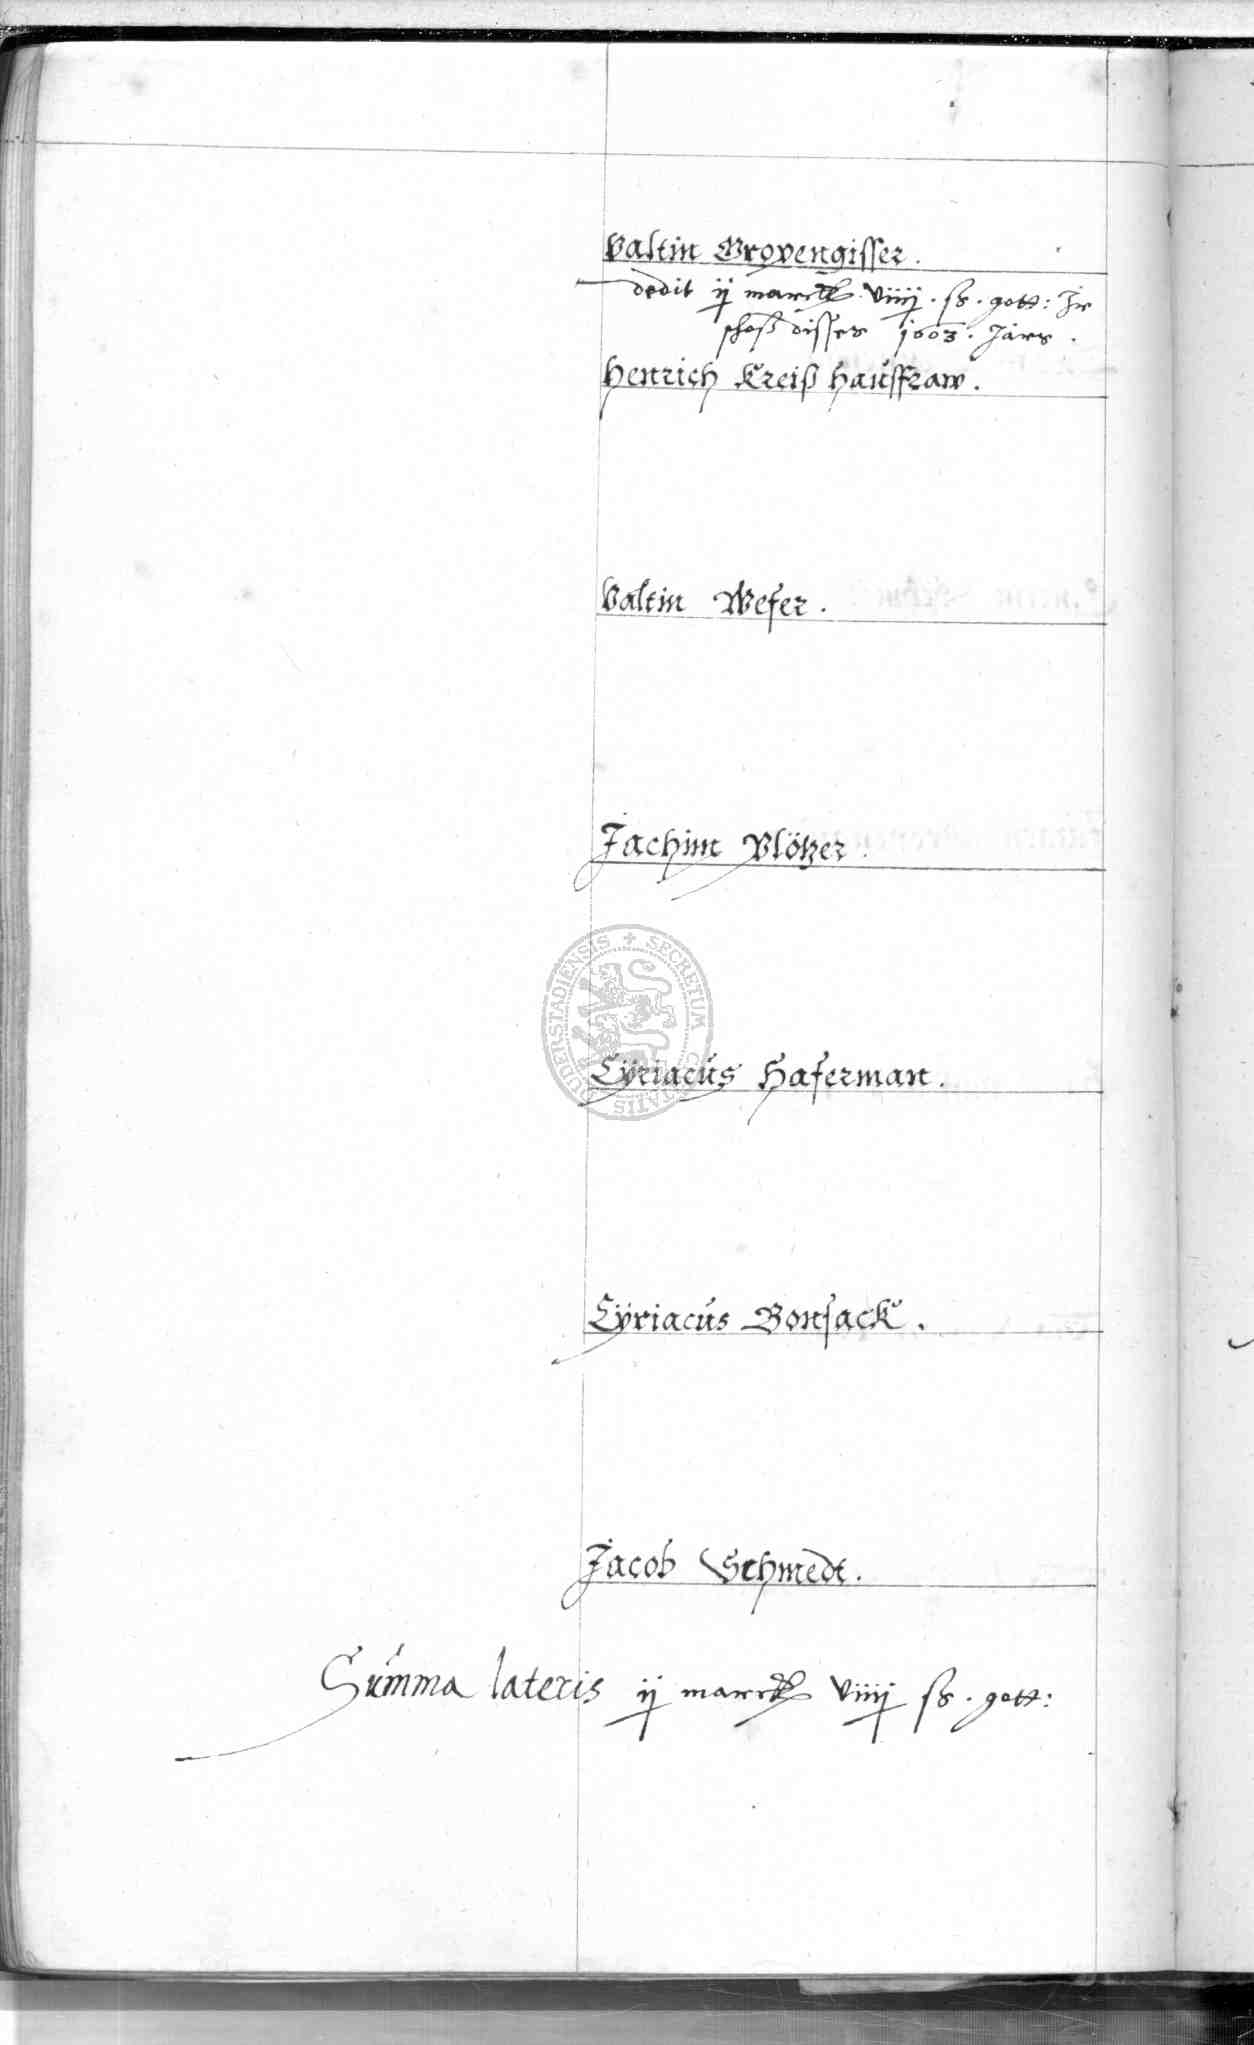 Valtin Gropengisser.
dedit ij marck. viiij. ß. gott: Ihr
schoß disses 1603. Jars.
Henrich Kreiß haußfraw.
Valtin Wefer.
Jachim Plötzer.
SECRETUM CIVITATIS DUDERSTADIENSIS
Cÿriacus Haferman.
Cÿriacus Bonsack.
Jacob Schmedt.
Summa lateris ij marck viiij ß. gott: